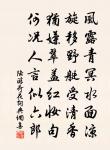 風露青冥水面涼
旋移野艇受清香
猶嫌翠蓋紅妝句
何況人言似六郎
陸游荷花詞典網書